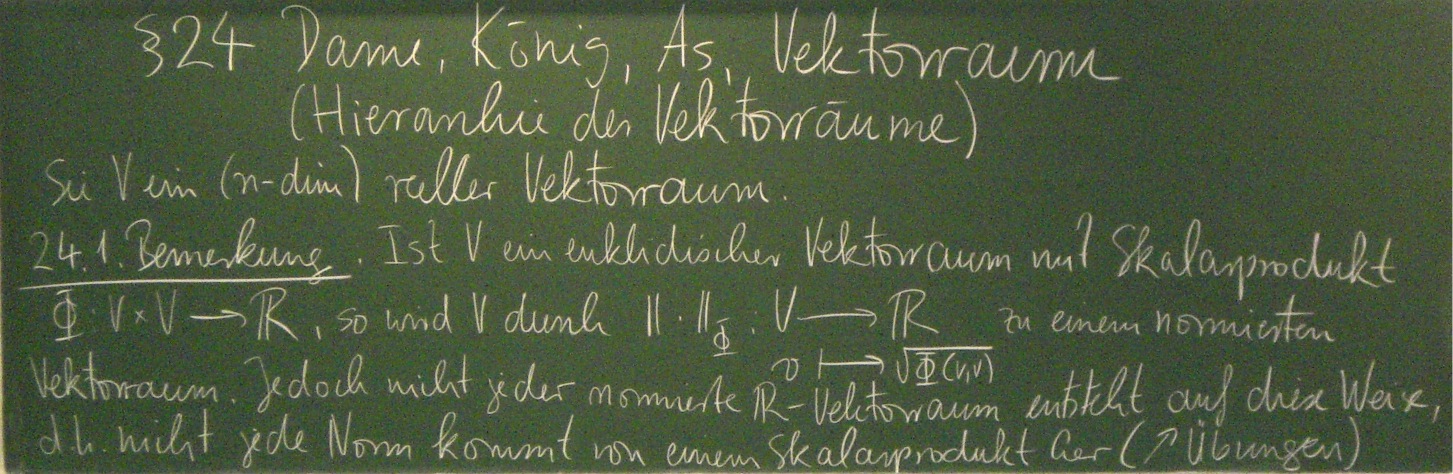 §24 Dame, König, As, Vektorraum
(Hierarchie der Vektorräume)
Sei V ein (n-dim) reeller Vektorraum.
24.1. Bemerkung. Ist V ein euklidischer Vektorraum mit Skalarprodukt
Φ: V×V → ℝ, so wird V durch ‖·‖_Φ : V → ℝ zu einem normierten
v ↦ √Φ(v,v)
Vektorraum. Jedoch nicht jeder normierte ℝ-Vektorraum entsteht auf diese Weise,
d.h. nicht jede Norm kommt von einem Skalarprodukt her (↗ Übungen)